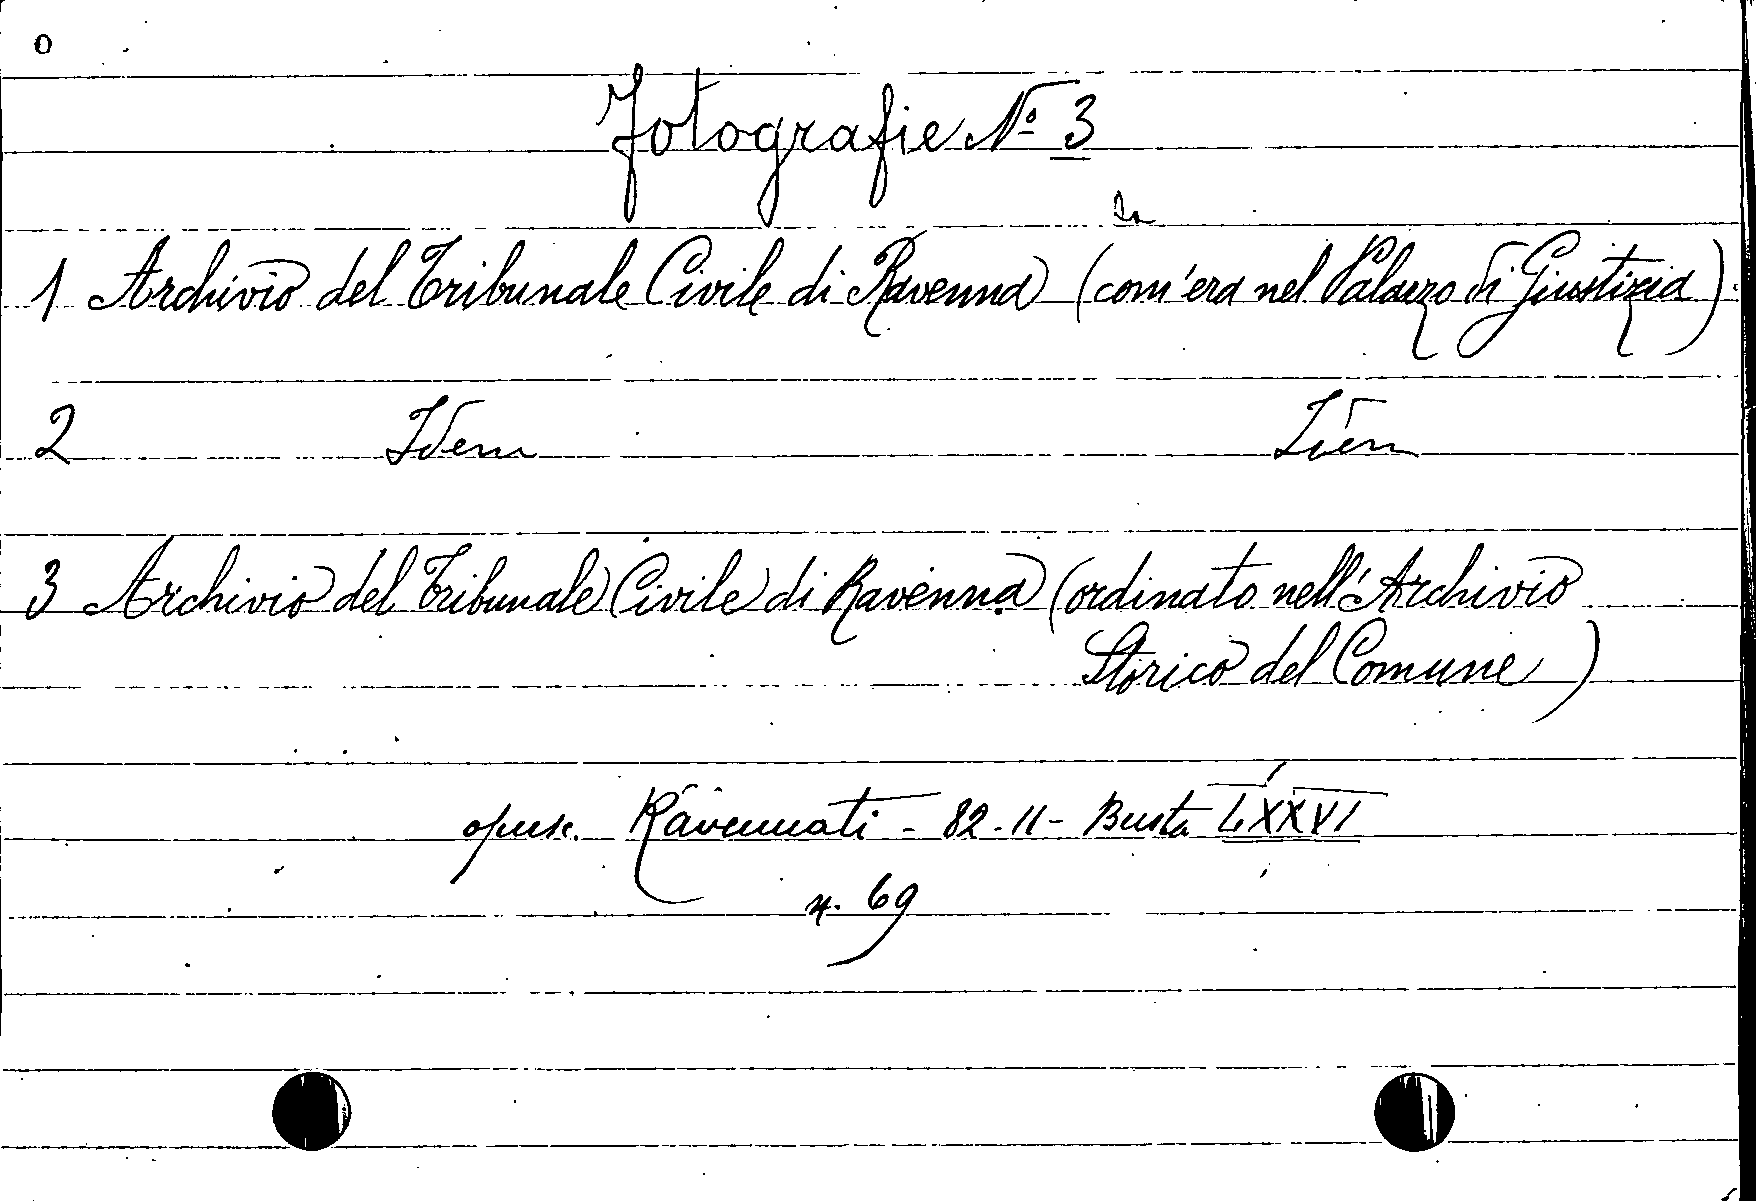 0
Fotografie N° 3
1 Archivio del Tribunale Civile di Ravenna (com'era nel Palazzo di Giustizia)
2 Idem Idem
3 Archivio del Tribunale Civile di Ravenna (ordinato nell'Archivio
Storico del Comune)
opusc. Ravennati - 82-11- Busta LXXVI
n. 69